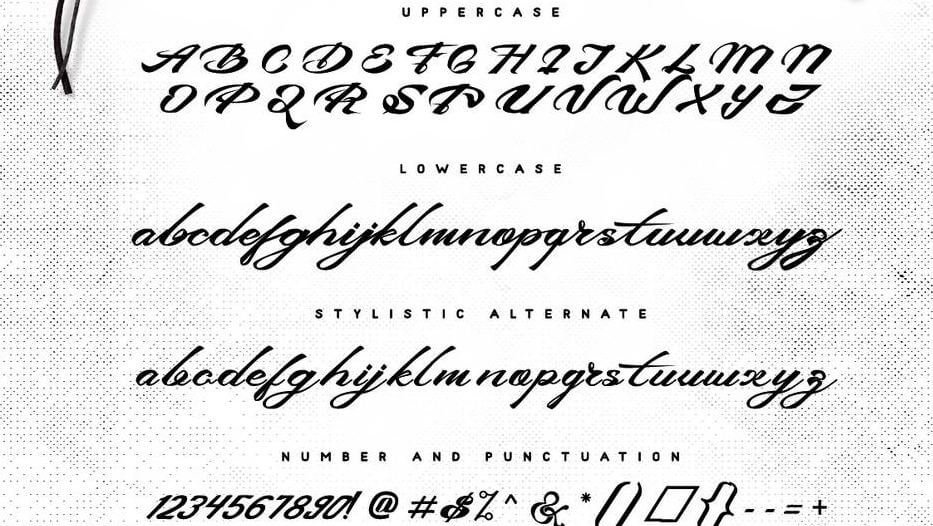 UPPERCASE
ABCDEFGHIJKLMN
OPQRSTUVWXYZ
LOWERCASE
abcdefghijklmnopqrstuvwxyz
STYLISTIC ALTERNATE
abcdefghijklmnopqrstuvwxyz
NUMBER AND PUNCTUATION
1234567890! @ # $ % ^ & * ( ) [ ] { } - - = +